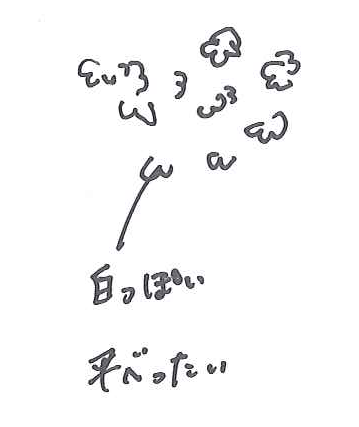 白っぽい
平べったい